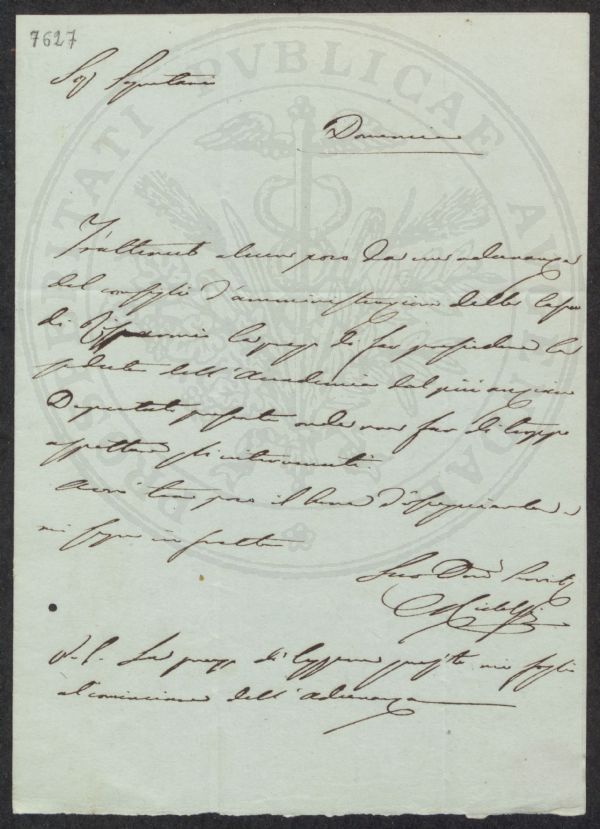 7627
PROSPERITATI PVBLICAE AVGENDAE
Sig Segretario
Domenica
Trattenuto alcun poco da una adunanza
del consiglio d'amministrazione della Cassa
di Risparmio la prego di far presiedere la
seduta dell'Accademia dal più anziano
Deputato presente onde non far di troppo
aspettare gli intervenuti.
Avrò tra poco il bene d'
mi segno in fretta
Suo Dev Servit
Ridolfi
P.S. La prego di leggere questo mio foglio
al cominciare dell'Adunanza